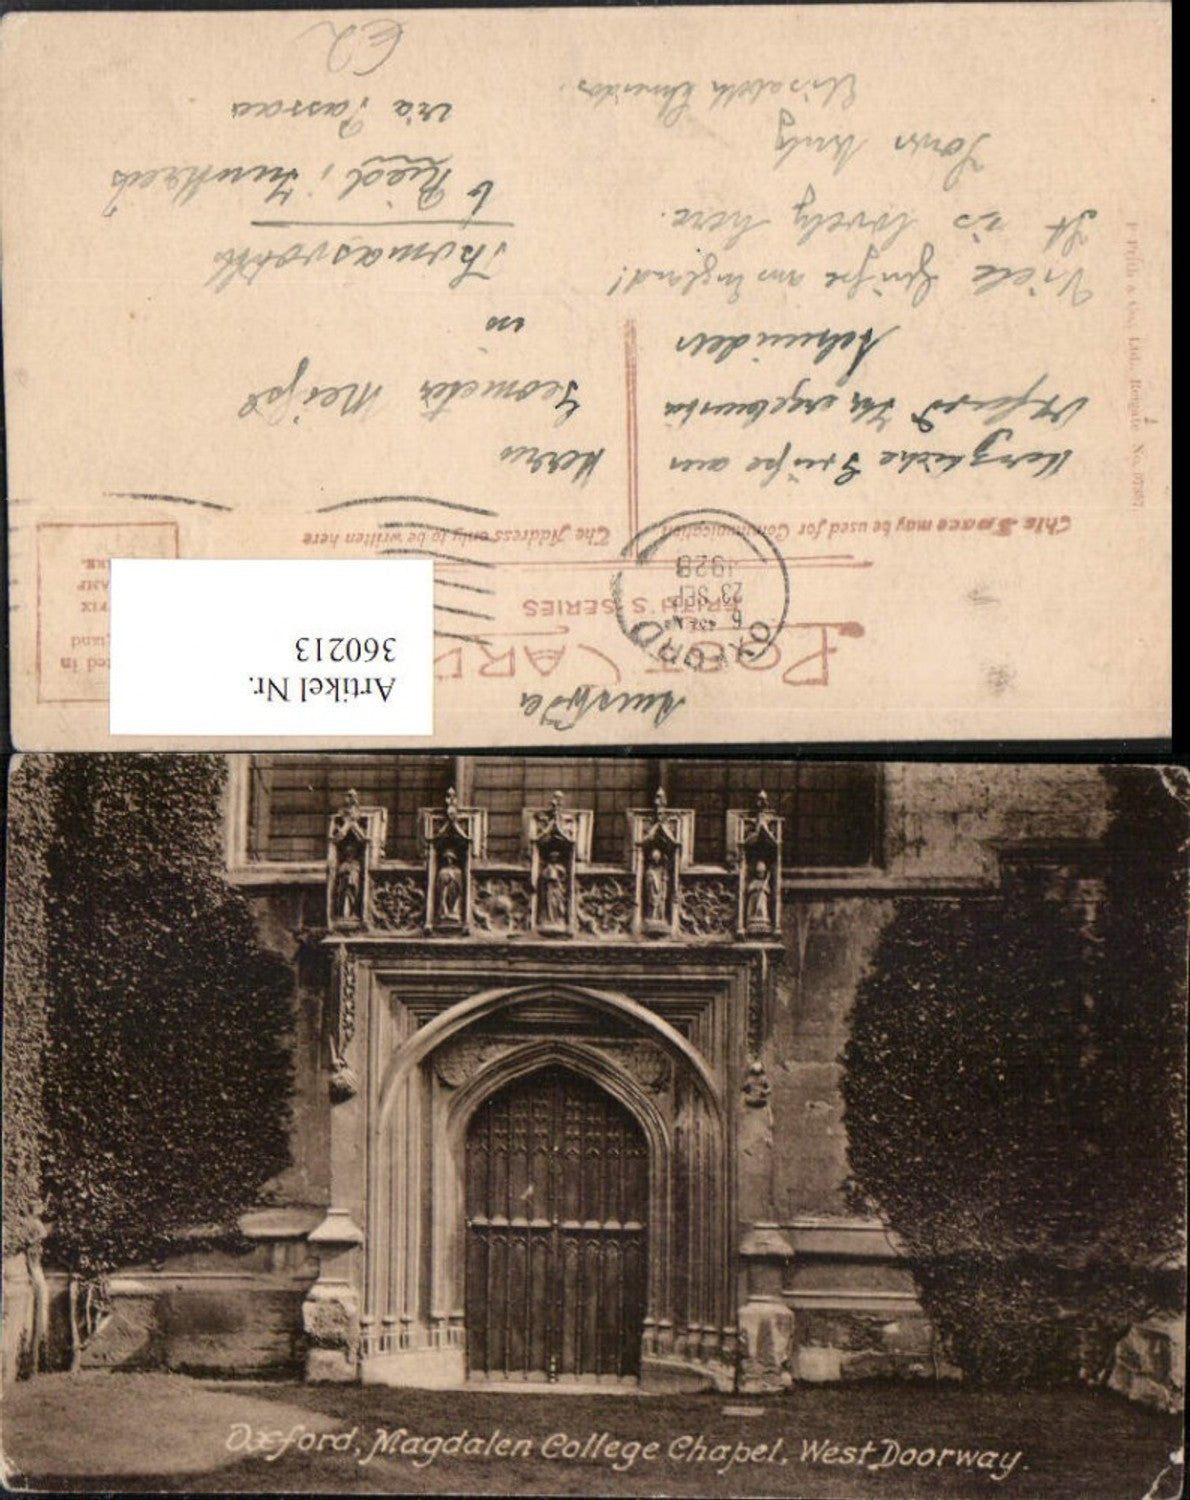 Austria
POST CARD
FRITH'S SERIES
OXFORD
6
23 SEP
1928
Artikel Nr.
360213
This Space may be used for Communication
The Address only to be written here
Herzliche Grüße aus
Oxford Ihr ergebenster
Schneider
Viele Grüße aus England!
It is lovely here.
Yours truly
Elisabeth Schneider.
Herrn
Geometer
in
Thomasroith
b Ried i Innkreis
via Passau
F. Frith & Co., Ltd., Reigate. No.
Oxford, Magdalen College Chapel, West Doorway.